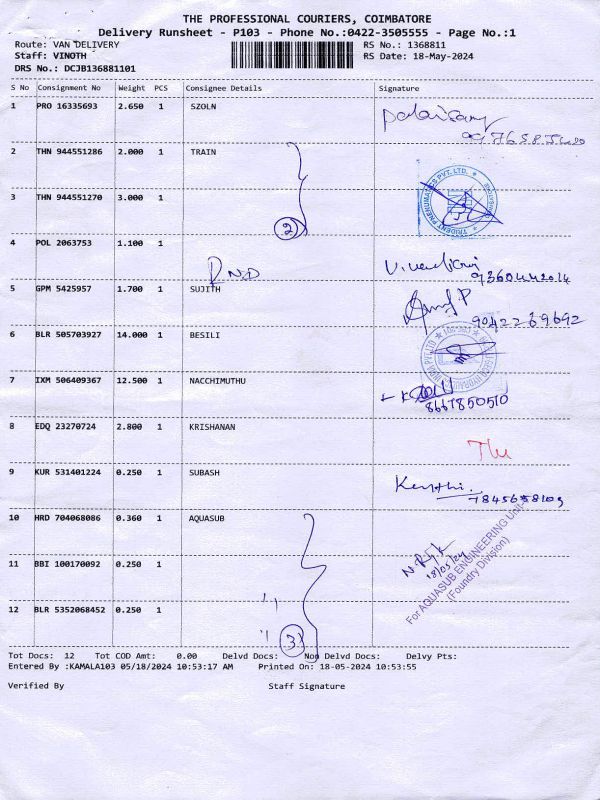 THE PROFESSIONAL COURIERS, COIMBATORE
Delivery Runsheet - P103 - Phone No.:0422-3505555 - Page No.:1
Route: VAN DELIVERY RS No.: 1368811
Staff: VINOTH RS Date: 18-May-2024
DRS No.: DCJB136881101
S No Consignment No Weight PCS Consignee Details Signature
1 PRO 16335693 2.650 1 SZOLN
2 THN 944551286 2.000 1 TRAIN
TRIDENT PNEUMATICS PVT. LTD.
3 THN 944551270 3.000 1
2
4 POL 2063753 1.100 1
9360442014
5 GPM 5425957 1.700 1 SUJITH
9042239692
6 BLR 505703927 14.000 1 BESILI
7 IXM 506409367 12.500 1 NACCHIMUTHU
8667850510
8 EDQ 23270724 2.800 1 KRISHANAN
9 KUR 531401224 0.250 1 SUBASH
10 HRD 704068086 0.360 1 AQUASUB
18/05/24
For AQUASUB ENGINEERING Unit-
(Foundry Division)
11 BBI 100170092 0.250 1
12 BLR 5352068452 0.250 1
3
Tot Docs: 12 Tot COD Amt: 0.00 Delvd Docs: Non Delvd Docs: Delvy Pts:
Entered By :KAMALA103 05/18/2024 10:53:17 AM Printed On: 18-05-2024 10:53:55
Verified By Staff Signature